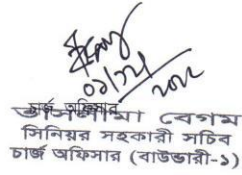 ০১/১২
চার্জ অফিসার
তাসলীমা বেগম
সিনিয়র সহকারী সচিব
চার্জ অফিসার (বাউন্ডারী-১)